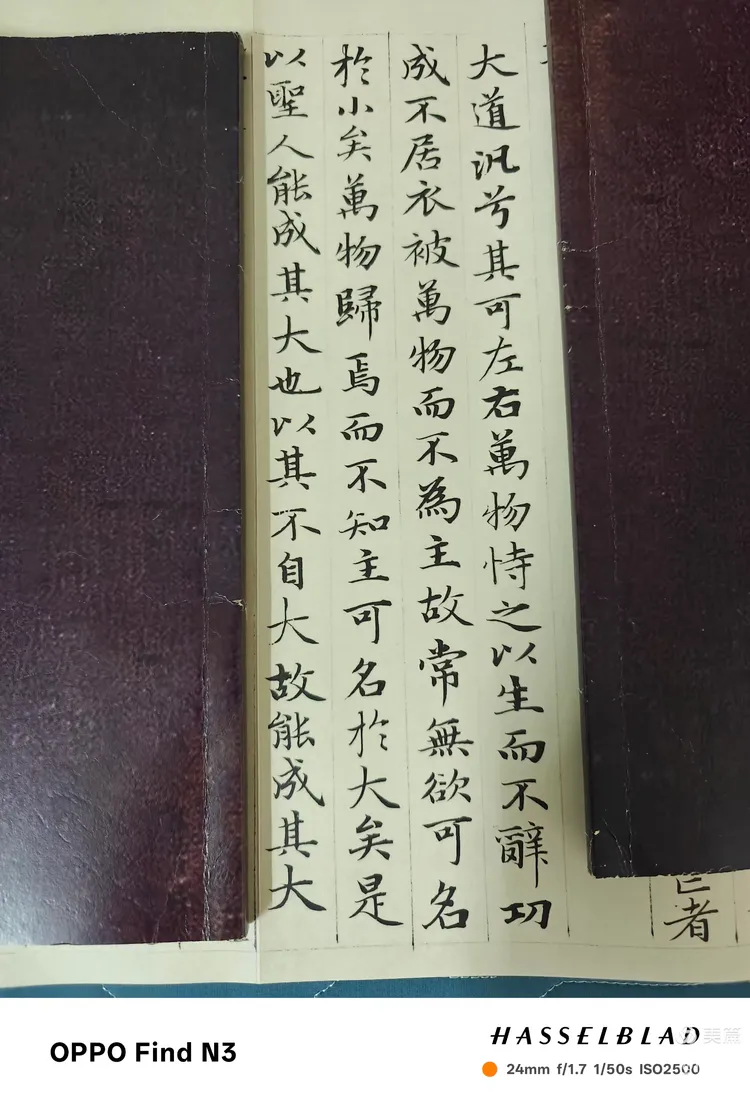 大道汎兮其可左右萬物恃之以生而不辭功
成不居衣被萬物而不為主故常無欲可名
於小矣萬物歸焉而不知主可名於大矣是
以聖人能成其大也以其不自大故能成其大
者
OPPO Find N3
HASSELBLAD
24mm f/1.7 1/50s ISO2500
美篇